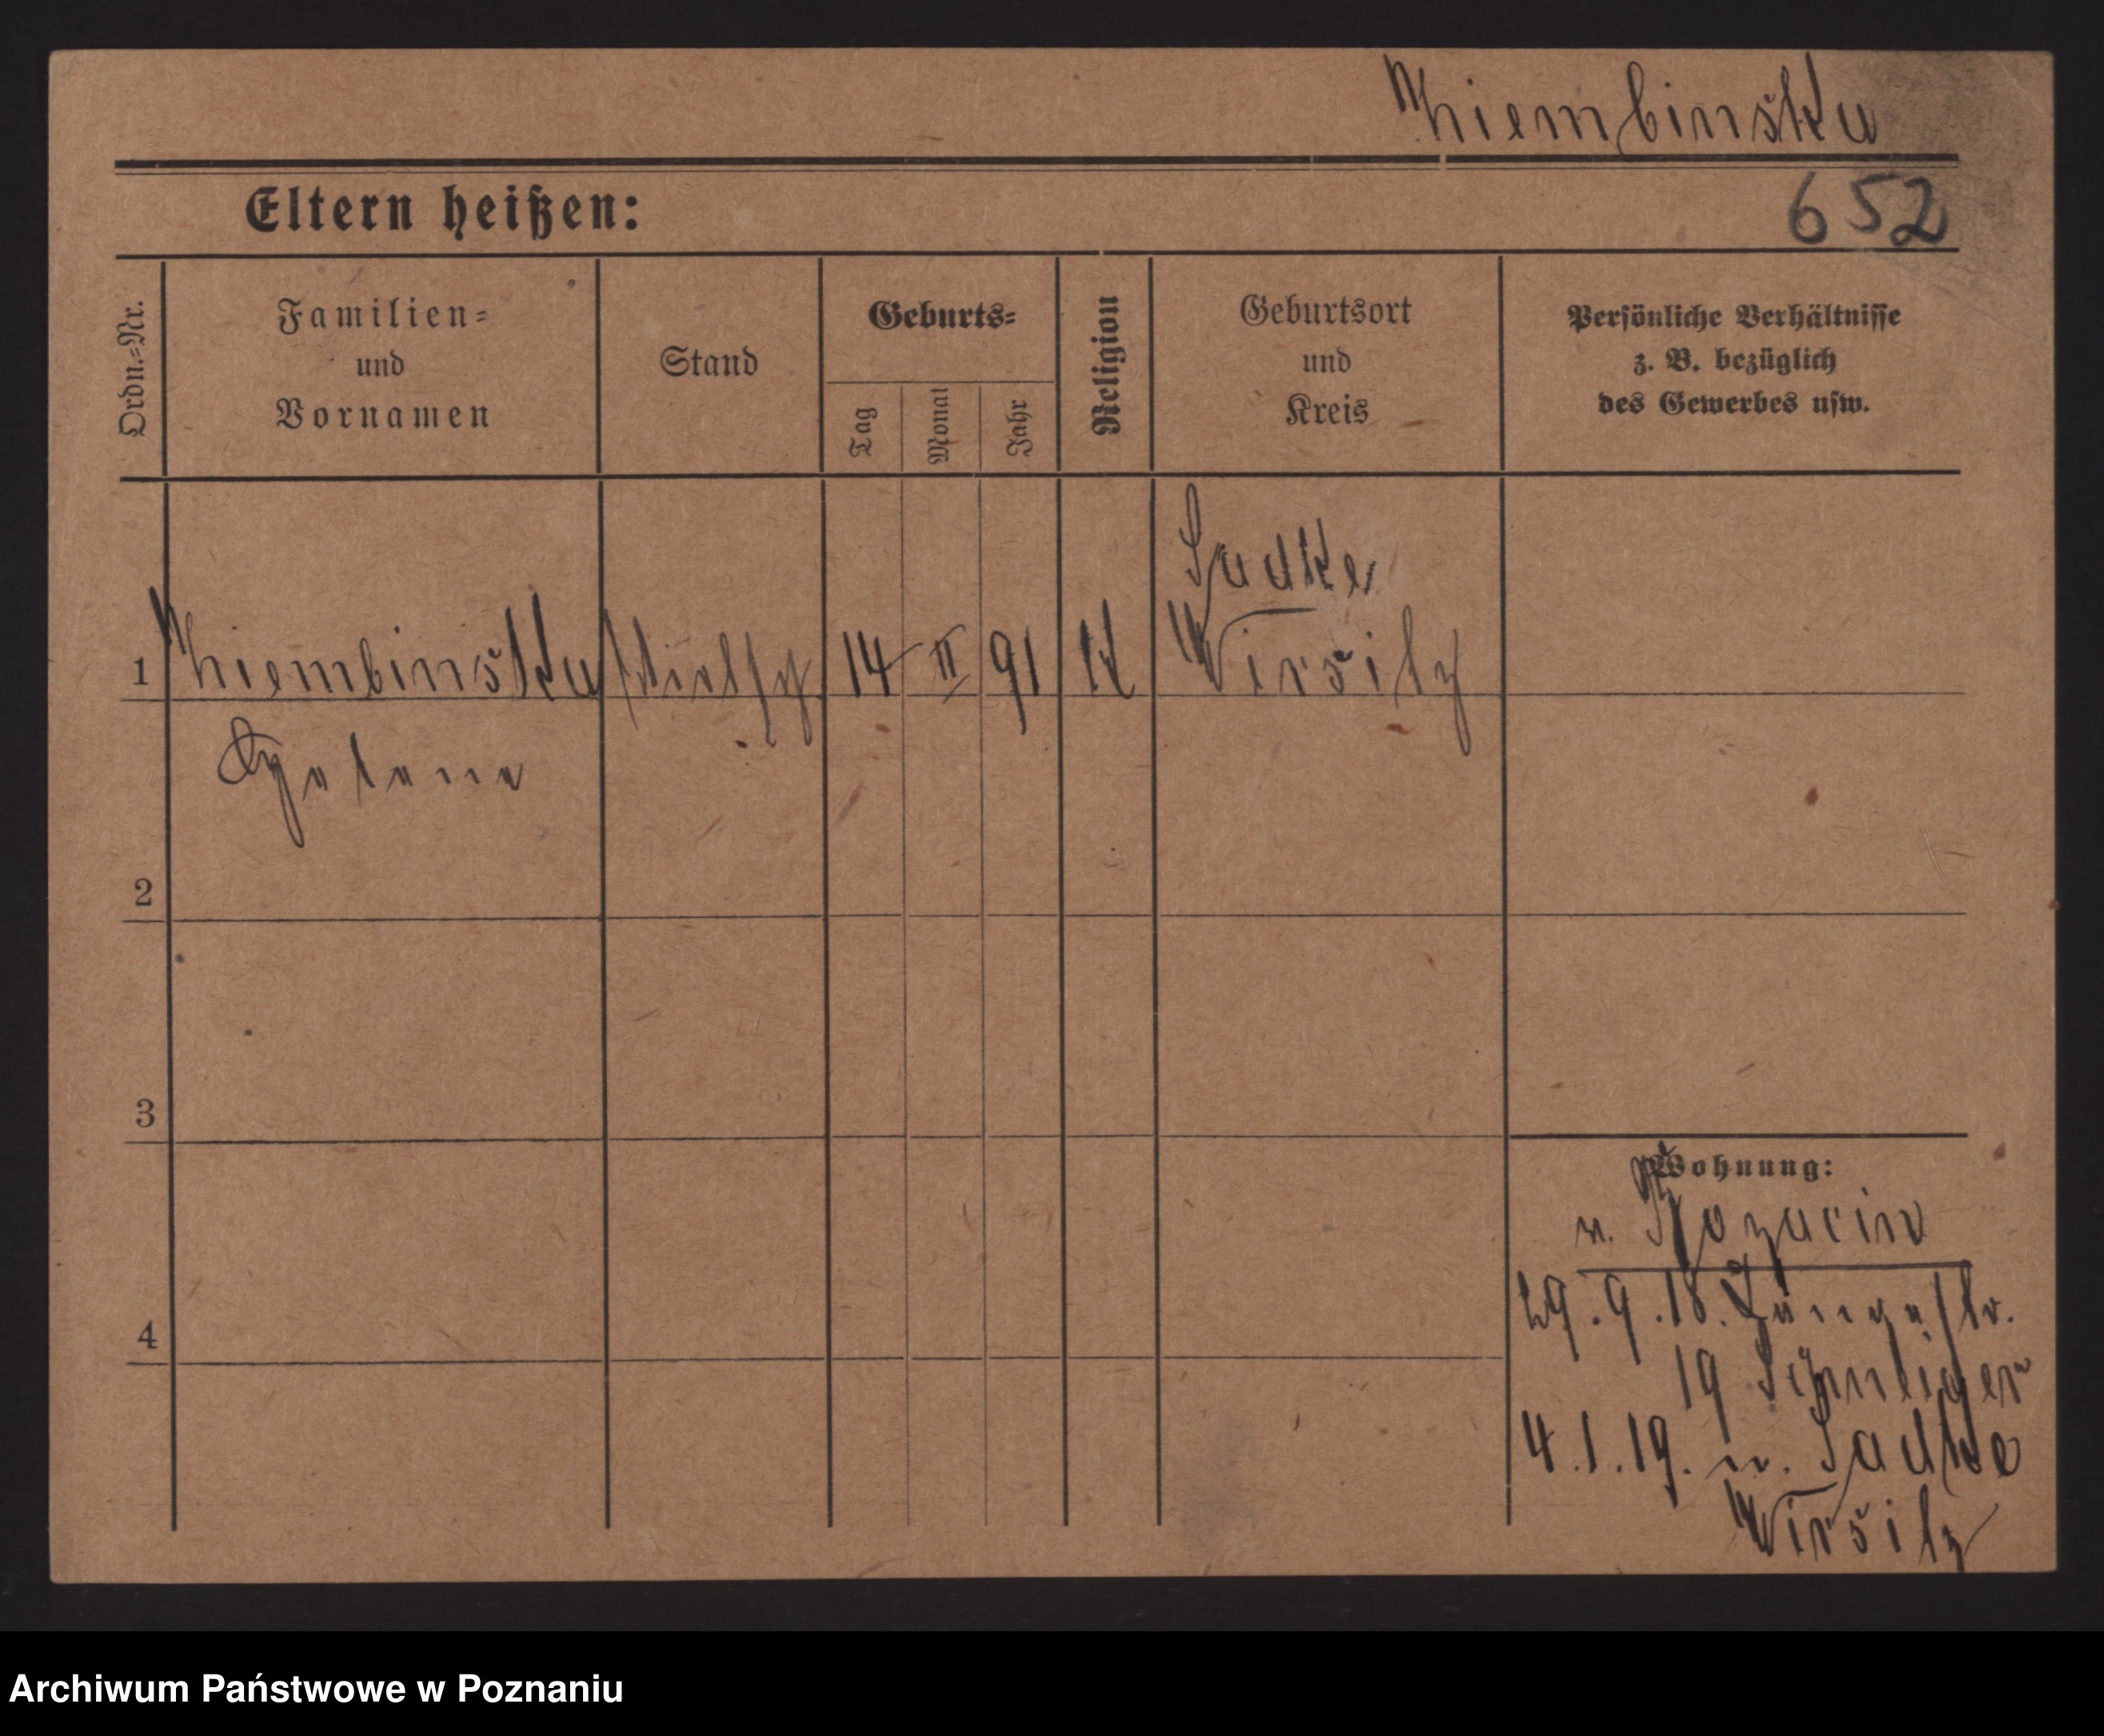 Niembinska
Eltern heißen:
652
Ordn.=Nr.
Familien=
und
Vornamen
Stand
Geburts=
Tag
Monat
Jahr
Religion
Geburtsort
und
Kreis
Persönliche Verhältnisse
z. B. bezüglich
des Gewerbes usw.
Sadke
1 Niembinska 14 II 91 K Wirsitz
Helene
2
3
4
Wohnung:
n.
29.9.18.
19
4.1.19. n. Sadke
Wirsitz
Archiwum Państwowe w Poznaniu